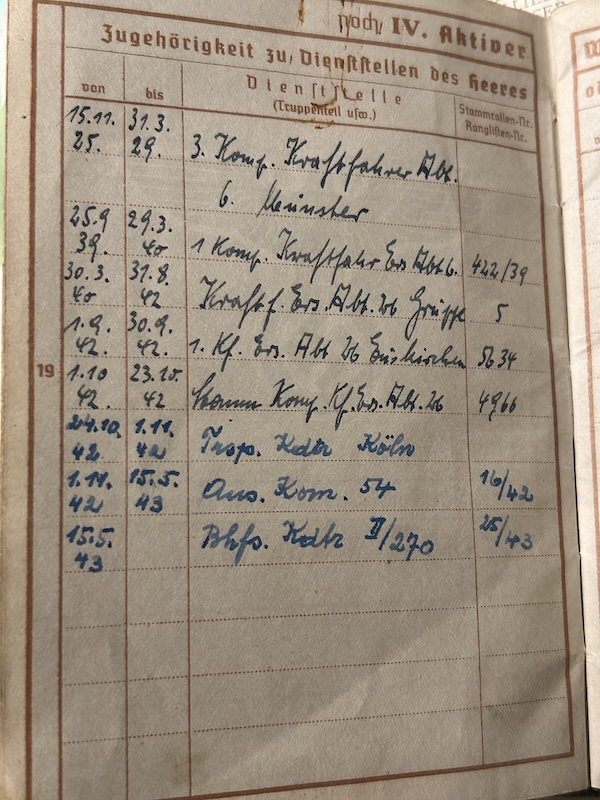 noch IV. Aktiver
Zugehörigkeit zu Dienststellen des Heeres
von bis Dienststelle (Truppenteil usw.) Stammrollen-Nr. Ranglisten-Nr.
15.11. 31.3.
25. 29. 3. Komp. Kraftfahrer Abt.
6. Münster
25.9 29.3.
39. 40 1 Komp. Kraftfahr Ers Abt 6. 422/39
30.3. 31.8.
40 42 Kraftf. Ers. Abt. 26 5
1.9. 30.9.
42. 42. 1. Kf. Ers. Abt 26 Euskirchen 5634
19
1.10 23.10.
42. 42 Stamm Komp. Kf. Ers. Abt. 26 4966
24.10. 1.11.
42 42 Trsp. Kdtr Köln
1.11. 15.5.
42 43 Aus. Kom. 54 16/42
15.5.
43 Bhfs. Kdtr II/270 25/43